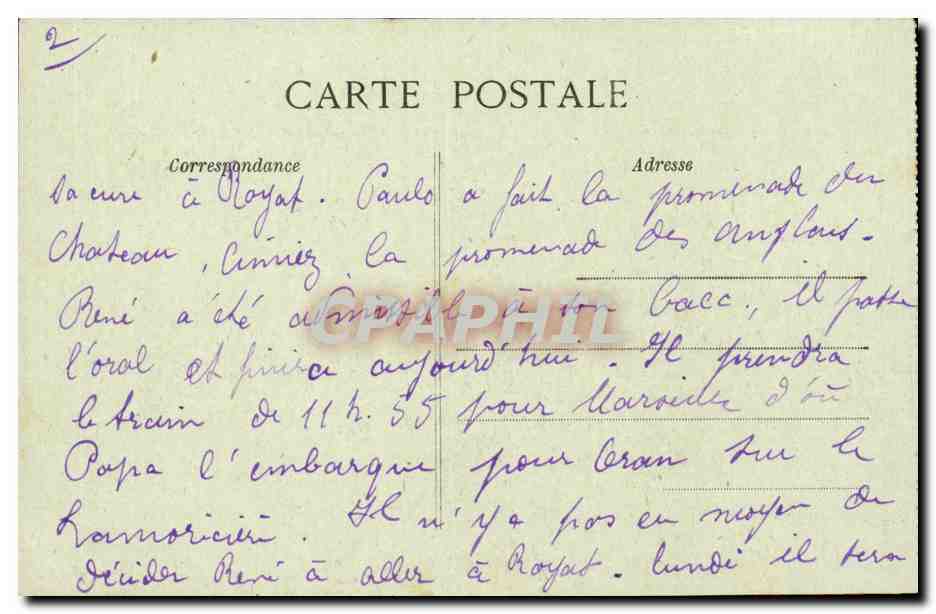 2
CARTE POSTALE
Correspondance
Adresse
sa cure à Royat. Paulo a fait la promenade du
Chateau, Cimiez, la promenade des anglais.
René a été admissible à son bacc., il passe
l'oral et finira aujourd'hui. Il prendra
le train de 11 h. 55 pour Marseille d'où
Papa l'embarque pour Oran sur le
Lamoricière. Il n'y a pas eu moyen de
décider René à aller à Royat. lundi il sera
CPAPHIL